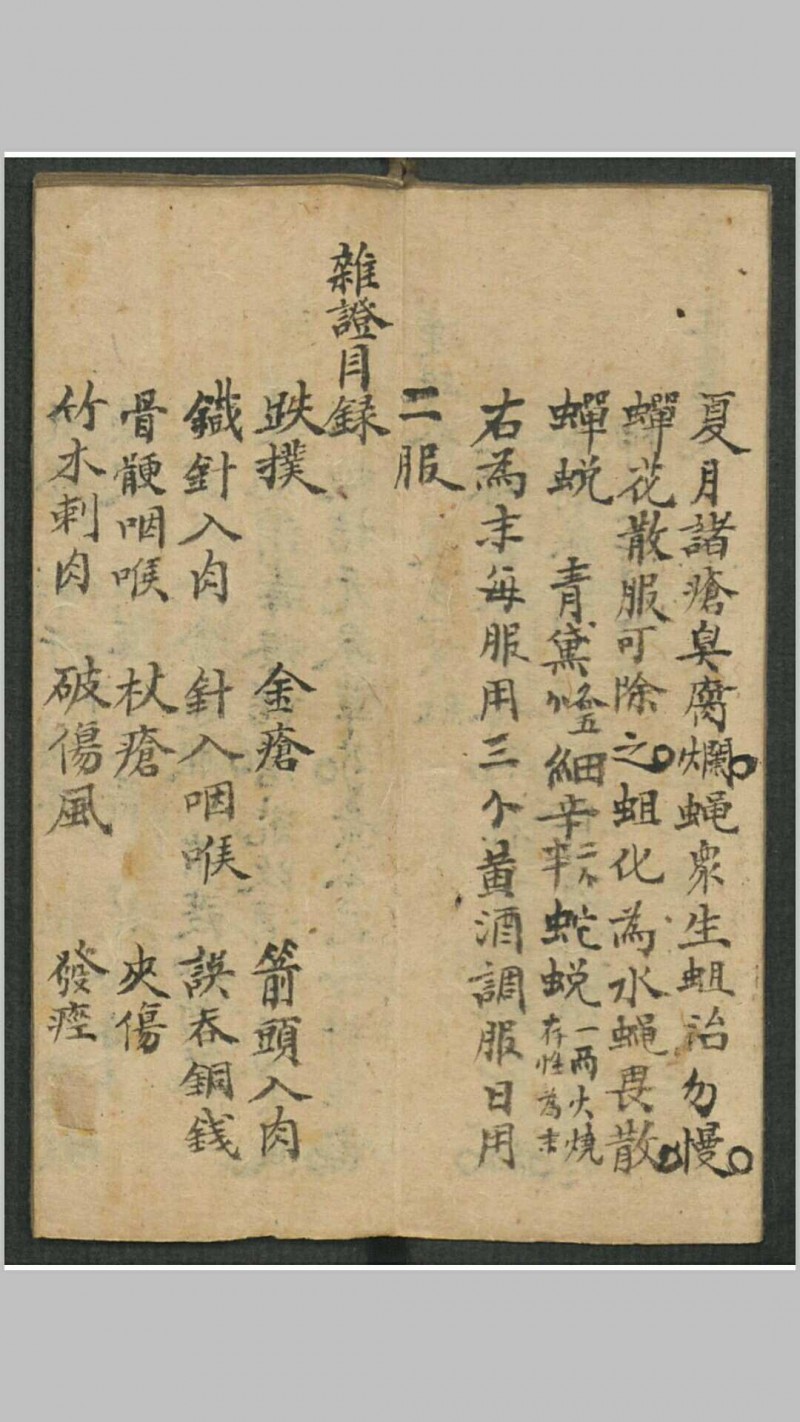 夏月諸瘡臭腐爛○蝇衆生蛆治勿慢○
蟬花散服可除之○蛆化為水蝇畏散○
蟬蜕 青黛各五 細辛二个半 蛇蜕一兩火燒存性為末
右為末每服用三个黄酒調服日用
二服
雜證目録
跌撲 金瘡 箭頭入肉
鐵針入肉 針入咽喉 誤吞銅錢
骨骾咽喉 杖瘡 夾傷
竹木刺肉 破傷風 發痙